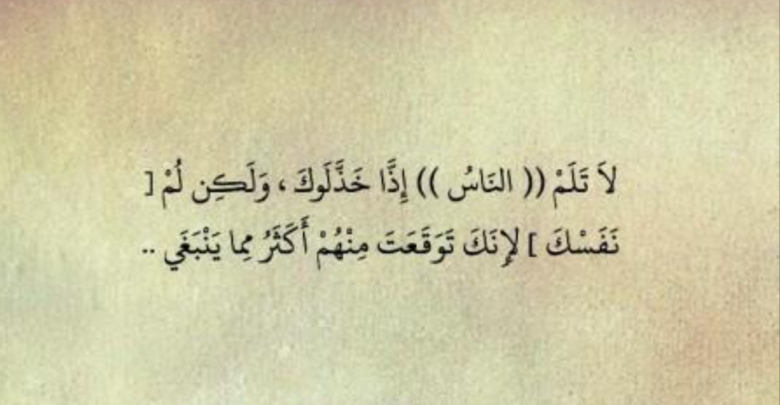 لاَ تَلَمْ (( النَاسُ )) إِذَّا خَذَّلَوكَ ، وَلَكِن لُمْ [
نَفَسْكَ ] لإِنَكَ تَوَقَعَتَ مِنْهُمْ أَكَثَرُ مِما يَنْبَغَي ..